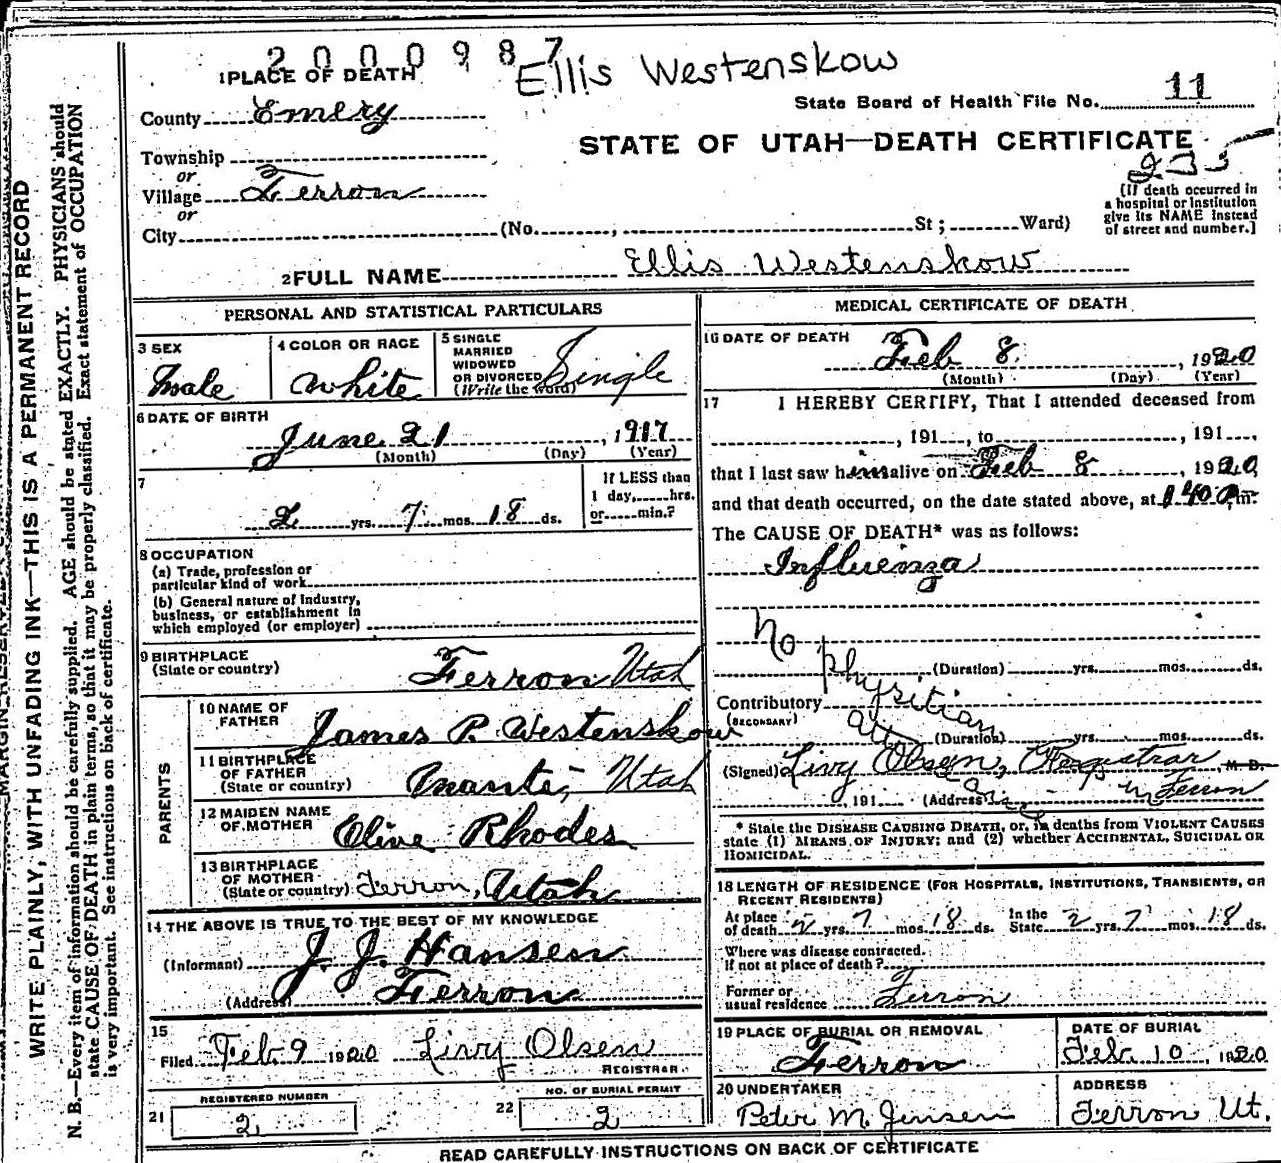 2000987
Ellis Westenskow
1 PLACE OF DEATH
State Board of Health File No. 11
County Emery
STATE OF UTAH—DEATH CERTIFICATE
235
Township
or
Village Ferron
or
City (No. , St; Ward)
(If death occurred in
a hospital or institution
give its NAME instead
of street and number.]
2 FULL NAME Ellis Westenskow
PERSONAL AND STATISTICAL PARTICULARS
3 SEX
Male
4 COLOR OR RACE
White
5 SINGLE
MARRIED
WIDOWED
OR DIVORCED
(Write the word)
Single
6 DATE OF BIRTH
June 21, 1917
(Month) (Day) (Year)
7
2 yrs. 7 mos. 18 ds.
If LESS than
1 day, hrs.
or min.?
8 OCCUPATION
(a) Trade, profession or
particular kind of work
(b) General nature of industry,
business, or establishment in
which employed (or employer)
9 BIRTHPLACE
(State or country)
Ferron Utah
PARENTS
10 NAME OF
FATHER
James P. Westenskow
11 BIRTHPLACE
OF FATHER
(State or country)
Manti, Utah
12 MAIDEN NAME
OF MOTHER
Olive Rhodes
13 BIRTHPLACE
OF MOTHER
(State or country) Ferron, Utah
14 THE ABOVE IS TRUE TO THE BEST OF MY KNOWLEDGE
(Informant) J. J. Hansen
(Address) Ferron
15
Filed Feb 9 1920 Livy Olsen
REGISTRAR
REGISTERED NUMBER
21 2
NO. OF BURIAL PERMIT
22 2
MEDICAL CERTIFICATE OF DEATH
16 DATE OF DEATH
Feb 8, 1920
(Month) (Day) (Year)
17 I HEREBY CERTIFY, That I attended deceased from
, 191 , to , 191 ,
that I last saw him alive on Feb 8, 1920,
and that death occurred, on the date stated above, at 1 40 Pm.
The CAUSE OF DEATH* was as follows:
Influenza
No physitian
(Duration) yrs. mos. ds.
Contributory
(SECONDARY)
att
(Duration) yrs. mos. ds.
(Signed) Livy Olsen, Registrar M. D.
, 191 (Address) in Ferron
* State the DISEASE CAUSING DEATH, or, in deaths from VIOLENT CAUSES
state (1) MEANS OF INJURY; and (2) whether ACCIDENTAL, SUICIDAL OR
HOMICIDAL.
18 LENGTH OF RESIDENCE (FOR HOSPITALS, INSTITUTIONS, TRANSIENTS, OR
RECENT RESIDENTS)
At place
of death 2 yrs. 7 mos. 18 ds.
In the
State 2 yrs. 7 mos. 18 ds.
Where was disease contracted.
If not at place of death?
Former or
usual residence Ferron
19 PLACE OF BURIAL OR REMOVAL
Ferron
DATE OF BURIAL
Feb. 10, 1920
20 UNDERTAKER
Peter M. Jensen
ADDRESS
Ferron Ut.
READ CAREFULLY INSTRUCTIONS ON BACK OF CERTIFICATE
WRITE PLAINLY, WITH UNFADING INK—THIS IS A PERMANENT RECORD
N. B.—Every item of information should be carefully supplied. AGE should be stated EXACTLY. PHYSICIANS should
state CAUSE OF DEATH in plain terms, so that it may be properly classified. Exact statement of OCCUPATION
is very important. See instructions on back of certificate.